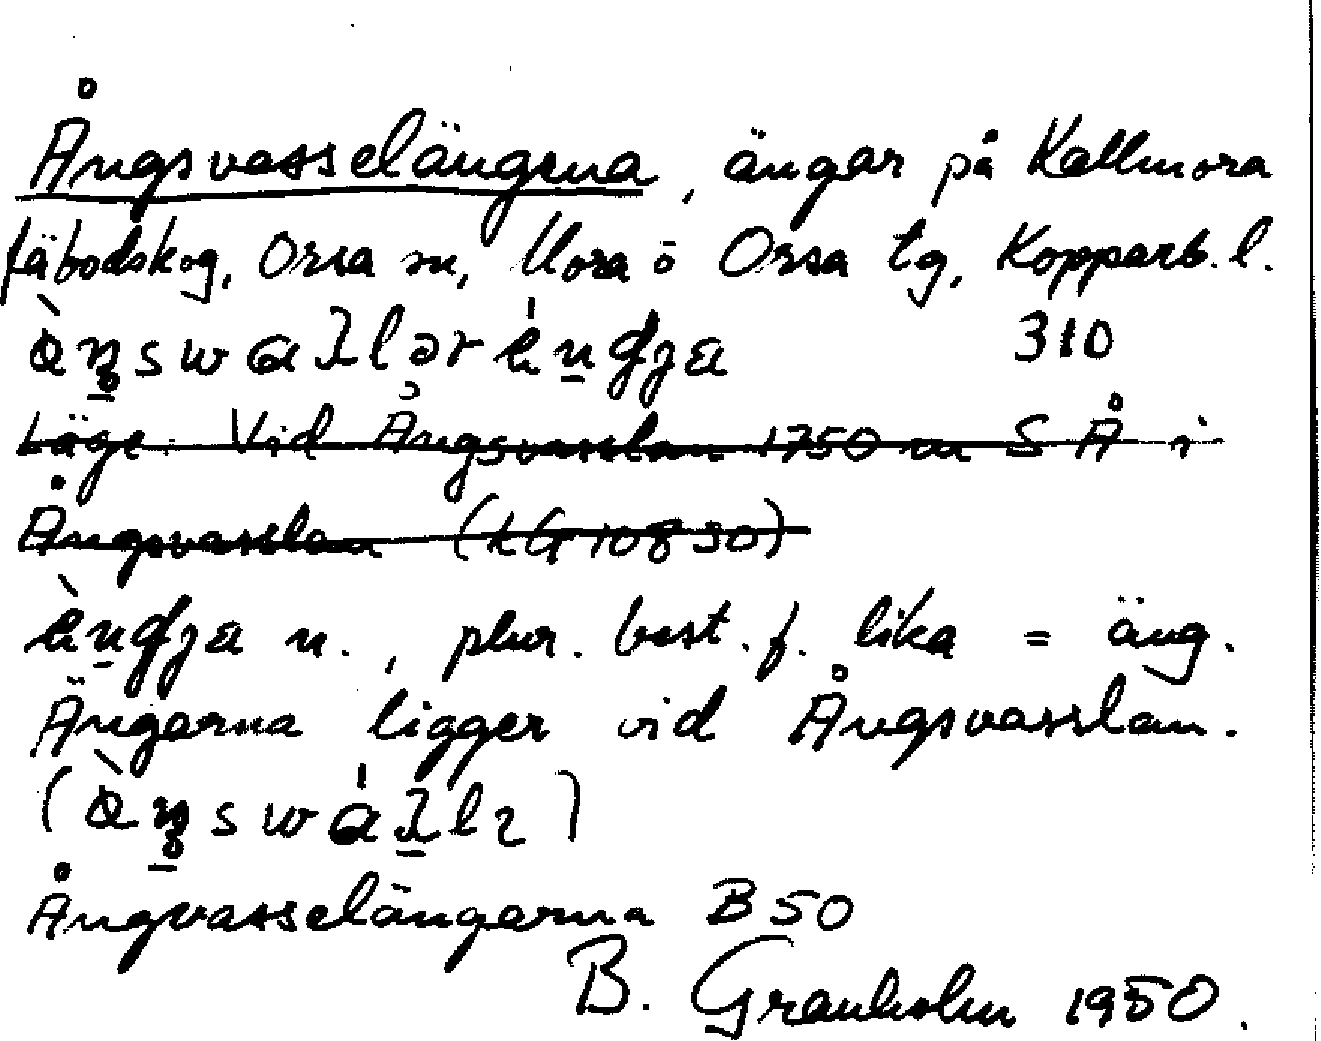 Ångsvasselängena, ängar på Kallmora
fäbodskog, Orsa sn, Mora o Orsa tg, Kopparb. l.
310
Läge: Vid Ångsvasslan 1750 m S Å i
Ångsvasslan (kG 10830)
n., plur. best. f. lika = äng.
Ängarna ligger vid Ångsvasslan.
Ångvasselängarna B 50
B. Granholm 1950.